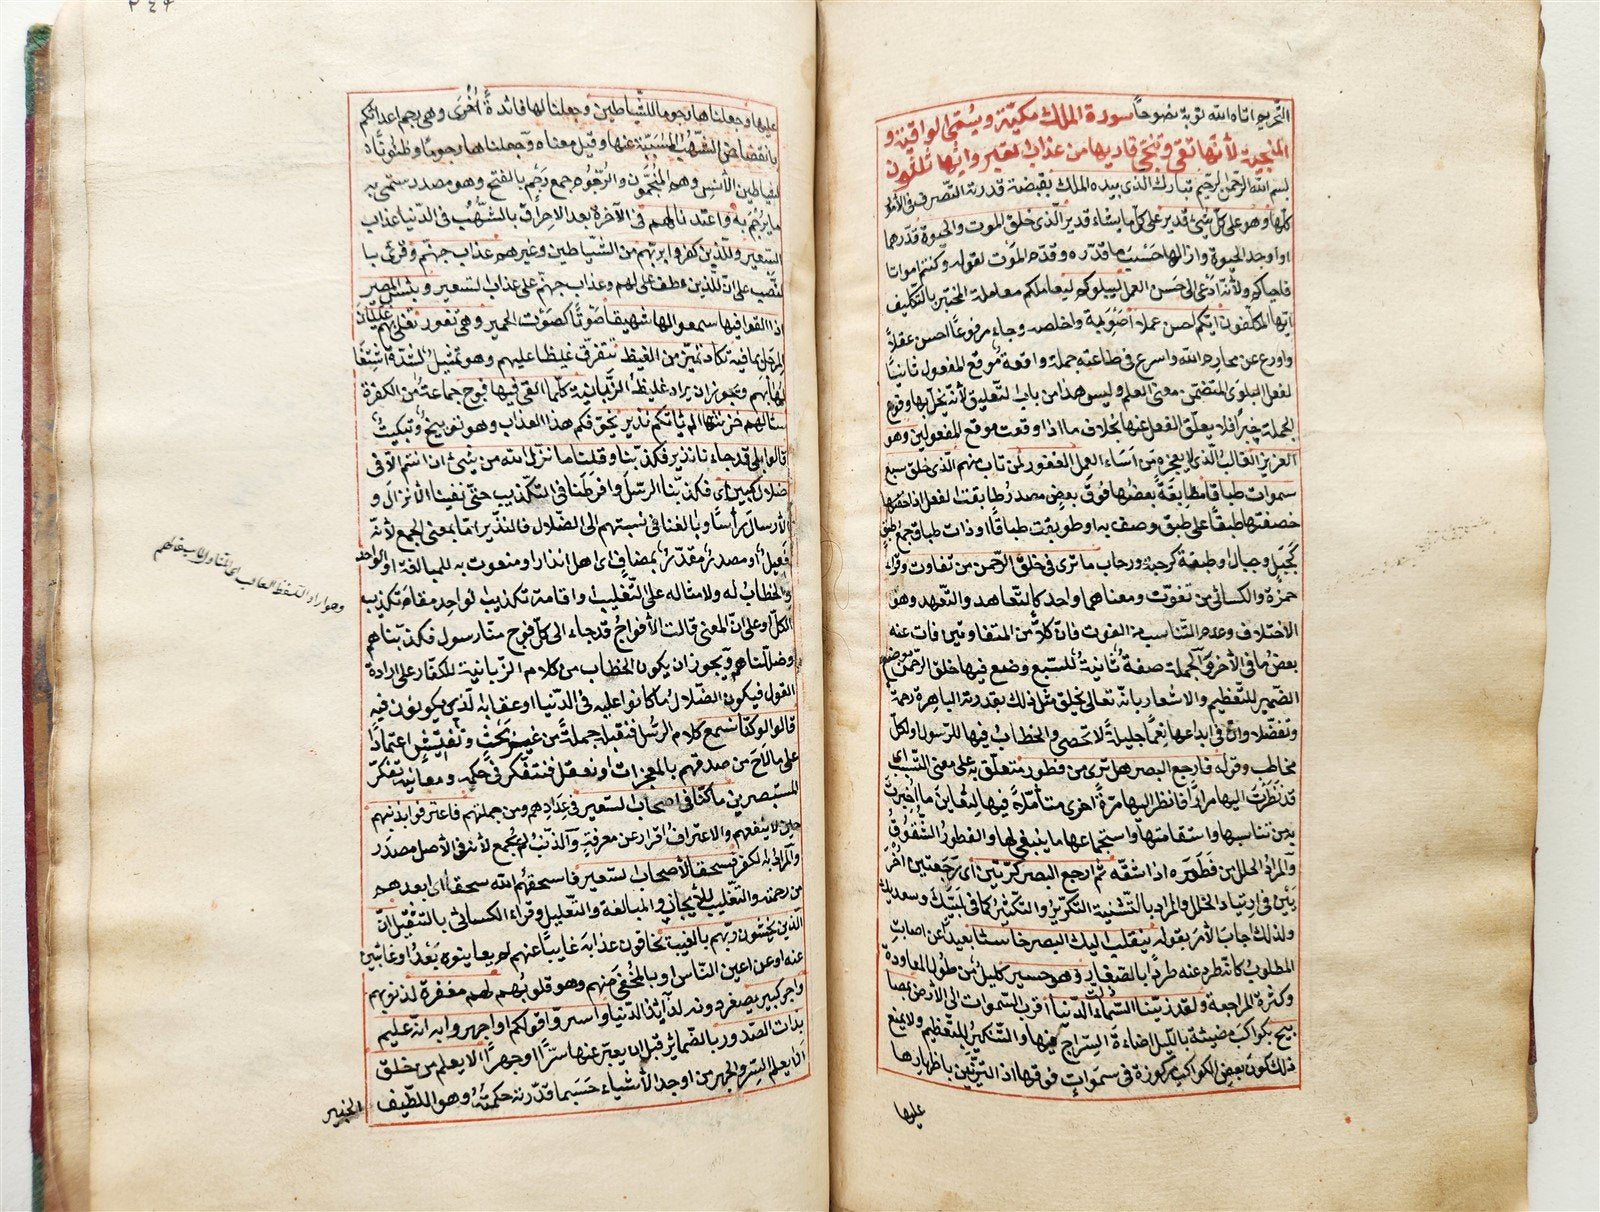 التحريم اتاه الله توبة نصوحا سورة الملك مكيّة ويسمّى الواقية و
المنجية لأنها تقي وتنجي قاريها من عذاب القبر وآيها ثلثون
بسم الله الرحمن الرحيم تبارك الذي بيده الملك بقبضة قدرته التصرف في الأمور
كلها وهو على كل شيء قدير على كل ما يشاء قدير الذي خلق الموت والحيوة قدّرهما
او اوجد الحيوة وازالها حسبما قدّره وقدم الموت لقوله وكنتم امواتا
فاحياكم ولأنه ادعى الى حسن العمل ليبلوكم ليعاملكم معاملة المختبر بالتكليف
ايها المكلفون ايكم احسن عملا اصوبه واخلصه وجاء مرفوعا احسن عقلا
واورع عن محارم الله واسرع في طاعته جملة واقعة موقع المفعول ثانيا
لفعل البلوى المتضمن معنى العلم وليس هذا من باب التعليق لأنه يخل بها وقوع
الجملة خبرا فلا يعلق الفعل عنها بخلاف ما اذا وقعت موقع المفعولين وهو
العزيز الغالب الذي لا يعجزه من اساء العمل الغفور لمن تاب منهم الذي خلق سبع
سموات طباقا مطابقة بعضها فوق بعض مصدر طابقت الفعل اذا خصفتها
طبقا على طبق وصف به او طوبقت طباقا او ذات طباق جمع طبق
كجبل وجبال او طبقة كرحبة ورحاب ما ترى في خلق الرحمن من تفاوت وقراء
حمزة والكسائي من تفوّت ومعناهما واحد كالتعاهد والتعهد وهو
الاختلاف وعدم التناسب من الفوت فان كلا من المتفاوتين فات عنه
بعض ما في الآخر والجملة صفة ثانية للسبع وضع فيها خلق الرحمن موضع
الضمير للتعظيم والاشعار بانه تعالى يخلق مثل ذلك بقدرته الباهرة رحمة
وتفضلا وان في ابداعها نعما جليلة لا تحصى والخطاب فيها للرسول او لكل
مخاطب وقوله فارجع البصر هل ترى من فطور متعلق به على معنى التسبب اي
قد نظرت اليها مرارا فانظر اليها مرة اخرى متأملا فيها لتعاين ما اخبرت
به من تناسبها واستقامتها واستجماعها ما ينبغي لها والفطور الشقوق
والمراد الخلل من فطره اذا شقه ثم ارجع البصر كرتين اي رجعتين اخر
يين في ارتياد الخلل والمراد بالتثنية التكرير والتكثير كما في لبيك وسعديك
ولذلك اجاب الأمر بقوله ينقلب اليك البصر خاسئا بعيدا عن اصابة
المطلوب كانه طرد عنه طردا بالصغار وهو حسير كليل من طول المعاودة
وكثرة المراجعة ولقد زينا السماء الدنيا اقرب السموات الى الأرض بمصا
بيح بكواكب مضيئة بالليل اضاءة السراج فيها والتنكير للتعظيم ولا يمنع
ذلك كون بعض الكواكب مركوزة في سموات فوقها اذ التزيين باظهارها
عليها
عليها وجعلناها رجوما للشياطين وجعلنا لها فائدة اخرى وهي رجم اعدائكم
بانقضاض الشهب المسببة عنها وقيل معناه وجعلناها رجوما وظنونا
لشياطين الأنس وهم المنجمون والرجوم جمع رجم بالفتح وهو مصدر سمي به
ما يرجم به واعتدنا لهم في الآخرة بعد الاحراق بالشهب في الدنيا عذاب
السعير وللذين كفروا بربهم من الشياطين وغيرهم عذاب جهنم وقرئ با
لنصب على ان للذين عطف على لهم وعذاب جهنم على عذاب السعير وبئس المصير
اذا القوا فيها سمعوا لها شهيقا صوتا كصوت الحمير وهي تفور تغلي بهم غليان
المرجل بما فيه تكاد تميز من الغيظ تتفرق غيظا عليهم وهو تمثيل لشدة اشتعا
لها بهم ويجوز ان يراد غيظ الزبانية كلما القي فيها فوج جماعة من الكفرة
سئالهم خزنتها الم ياتكم نذير يخوفكم هذا العذاب وهو توبيخ وتبكيت
قالوا بلى قد جاءنا نذير فكذبنا وقلنا ما نزل الله من شيء ان انتم الا في
ضلال كبير اي فكذبنا الرسل وافرطنا في التكذيب حتى نفينا الانزال و
الارسال رأسا وبالغنا في نسبتهم الى الضلال فالنذير اما بمعنى الجمع لأنه
فعيل او مصدر مقدر بمضاف اي اهل انذار او منعوت به للمبالغة او الواحد
والخطاب له ولامثاله على التغليب او اقامة تكذيب الواحد مقام تكذيب
الكل او على ان المعنى قالت الأفواج قد جاء الى كل فوج منا رسول فكذبناهم
وضللناهم ويجوز ان يكون الخطاب من كلام الزبانية للكفار على ارادة
القول فيكون الضلال ما كانوا عليه في الدنيا او عقابه الذي يكونون فيه
قالوا لو كنا نسمع كلام الرسل فنقبله جملة من غير بحث وتفتيش اعتمادا
على ما لاح من صدقهم بالمعجزات او نعقل فنتفكر في حكمه ومعانيه تفكر
المستبصرين ما كنا في اصحاب السعير في عدادهم ومن جملتهم فاعترفوا بذنبهم
حين لا ينفعهم والاعتراف اقرار عن معرفة والذنب لم يجمع لأنه في الأصل مصدر
والمراد به الكفر فسحقا لأصحاب السعير فاسحقهم الله سحقا اي ابعدهم
من رحمته والتغليب للأيجاز والمبالغة والتعليل وقراء الكسائي بالتثقيل ان
الذين يخشون ربهم بالغيب يخافون عذابه غايبا عنهم لم يعاينوه بعد او غائبين
عنه او عن اعين الناس او بالمخفي منهم وهو قلوبهم لهم مغفرة لذنوبهم
واجر كبير يصغر دونه لذائذ الدنيا واسروا قولكم او اجهروا به انه عليم
بذات الصدور بالضمائر قبل ان يعبر عنها سرا او جهرا الا يعلم من خلق
الا يعلم السر والجهر من اوجد الأشياء حسبما قدرته حكمته وهو اللطيف
الخبير